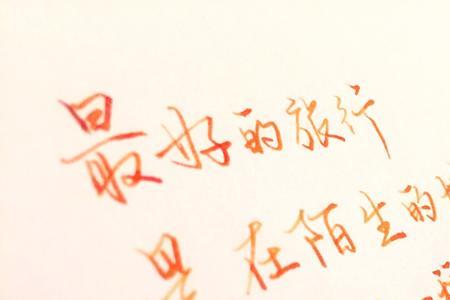 最好的旅行
是在陌生的